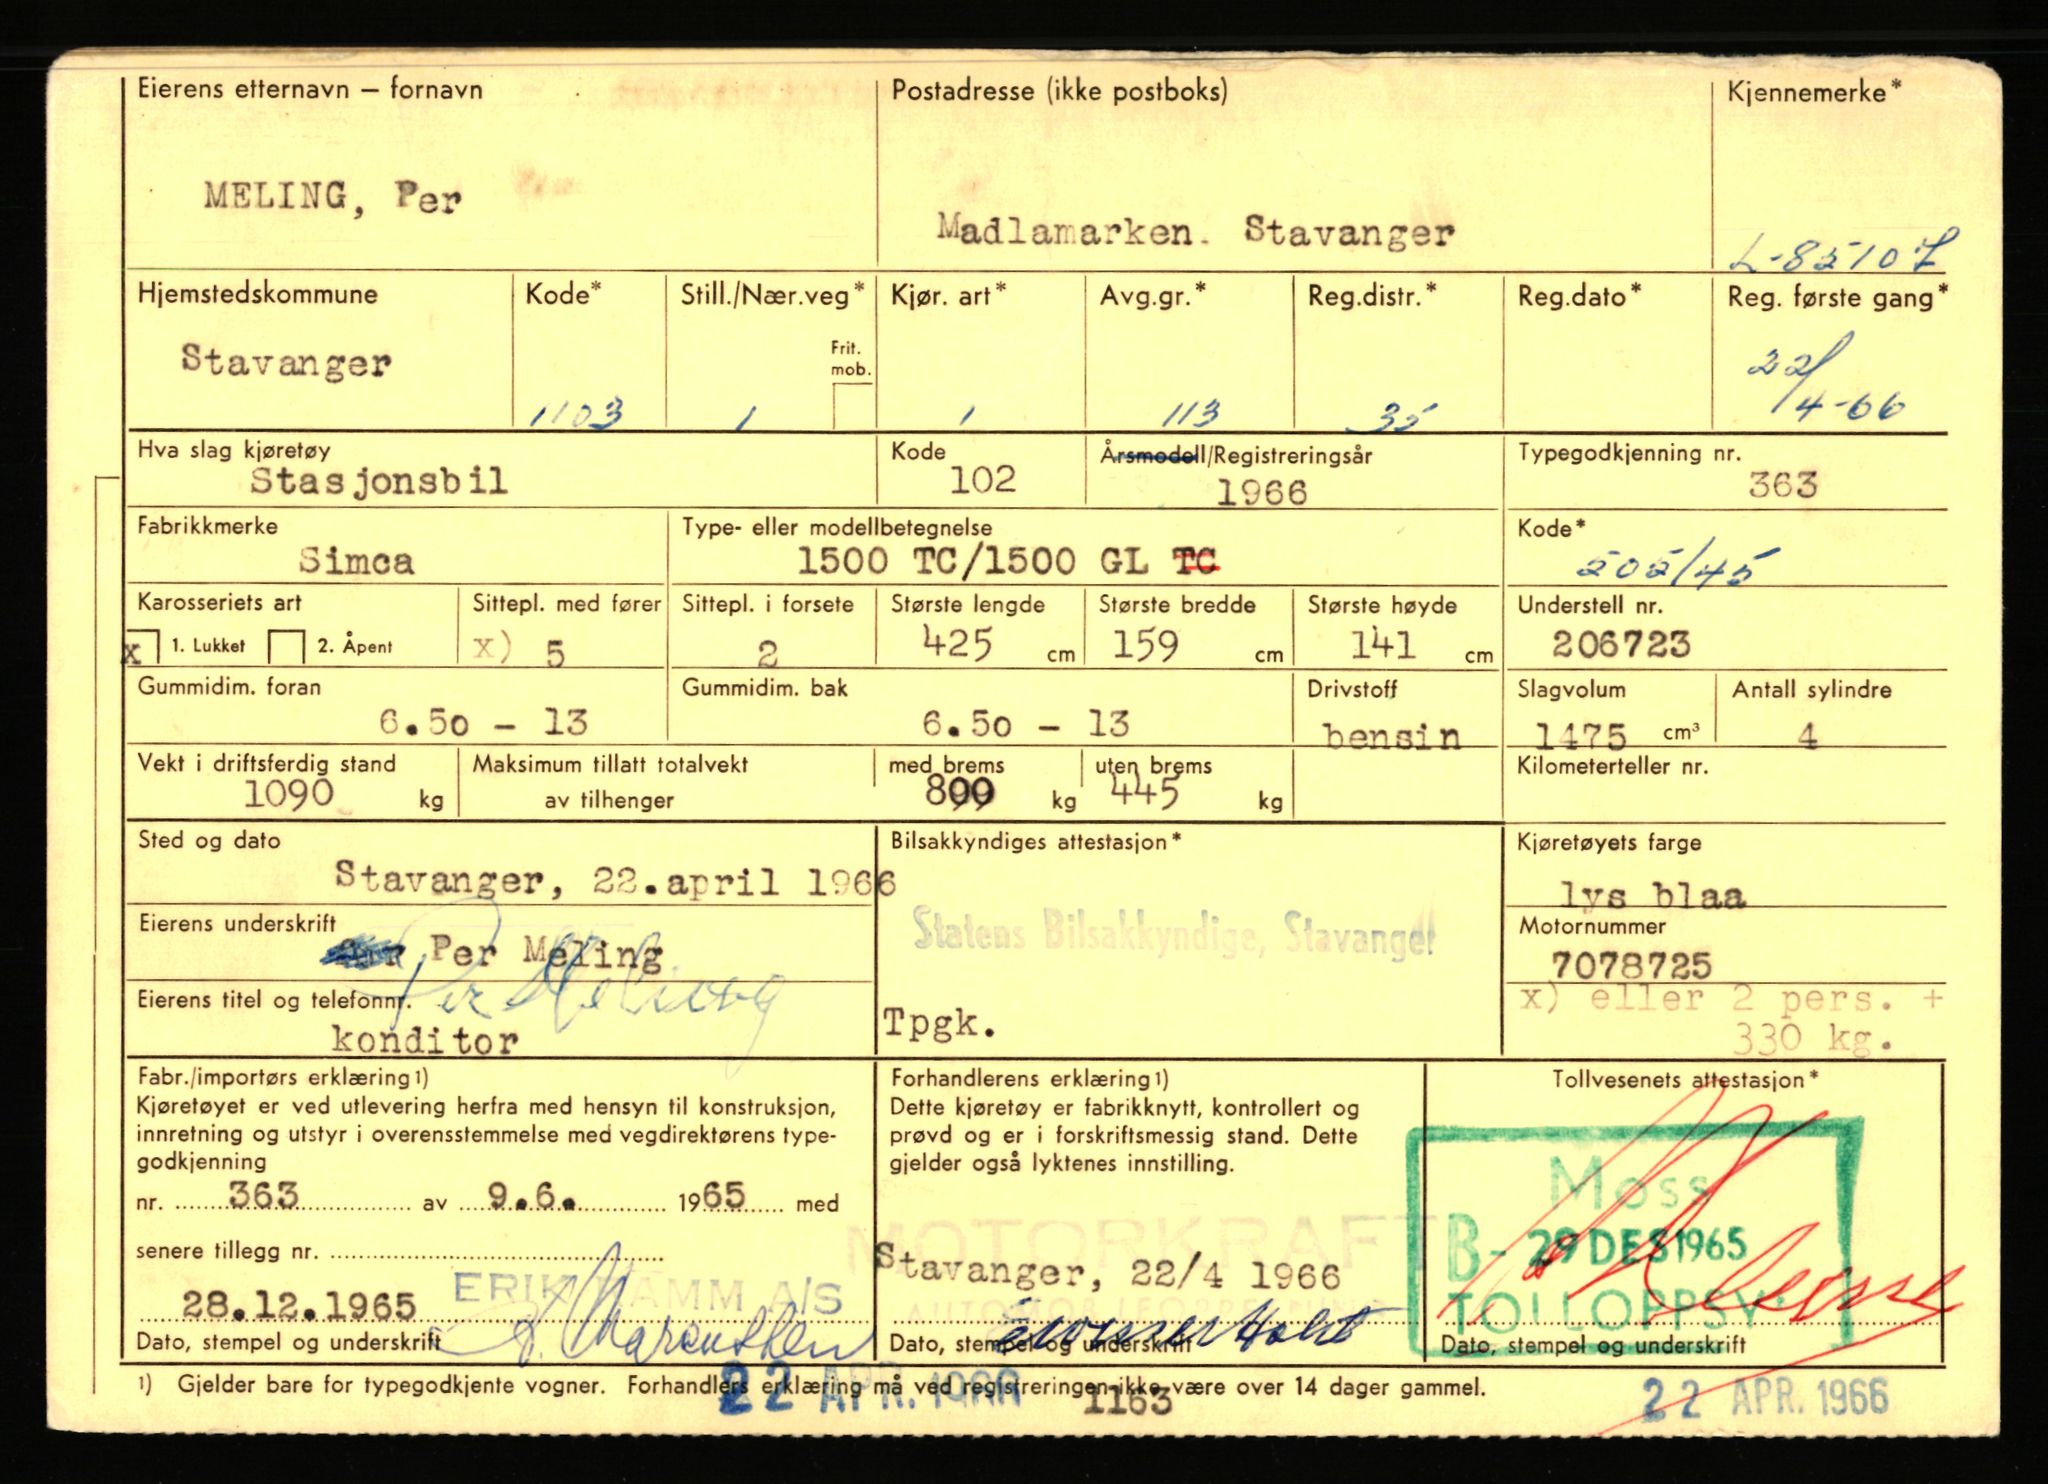 Eierens etternavn – fornavn
MELING, Per
Postadresse (ikke postboks)
Madlamarken. Stavanger
Kjennemerke*
L-85107
Hjemstedskommune
Stavanger
Kode*
1103
Still./Nær.veg*
Frit. mob.
1
Kjør. art*
1
Avg.gr.*
113
Reg.distr.*
35
Reg.dato*
Reg. første gang*
22/4-66
Hva slag kjøretøy
Stasjonsbil
Kode
102
Årsmodell/Registreringsår
1966
Typegodkjenning nr.
363
Fabrikkmerke
Simca
Type- eller modellbetegnelse
1500 TC/1500 GL TC
Kode*
202/45
Karosseriets art
x 1. Lukket 2. Åpent
Sittepl. med fører
x) 5
Sittepl. i forsete
2
Største lengde
425 cm
Største bredde
159 cm
Største høyde
141 cm
Understell nr.
206723
Gummidim. foran
6.50 – 13
Gummidim. bak
6.50 – 13
Drivstoff
bensin
Slagvolum
1475 cm³
Antall sylindre
4
Vekt i driftsferdig stand
1090 kg
Maksimum tillatt totalvekt
av tilhenger
med brems
800 kg
uten brems
445 kg
Kilometerteller nr.
Sted og dato
Stavanger, 22.april 1966
Bilsakkyndiges attestasjon*
Statens Bilsakkyndige, Stavanger
Tpgk.
Kjøretøyets farge
lys blaa
Eierens underskrift
Per Meling
Per Meling
Motornummer
7078725
x) eller 2 pers. +
330 kg.
Eierens titel og telefonnr.
konditor
Fabr./importørs erklæring1)
Kjøretøyet er ved utlevering herfra med hensyn til konstruksjon,
innretning og utstyr i overensstemmelse med vegdirektørens type-
godkjenning
nr. 363 av 9.6. 1965 med
senere tillegg nr.
ERIK HAMM A/S
28.12.1965
Dato, stempel og underskrift
Forhandlerens erklæring1)
Dette kjøretøy er fabrikknytt, kontrollert og
prøvd og er i forskriftsmessig stand. Dette
gjelder også lyktenes innstilling.
MOTORKRAFT
Stavanger, 22/4 1966
Dato, stempel og underskrift
Tollvesenets attestasjon*
Moss
B - 29 DES 1965
TOLLOPPSYN
Dato, stempel og underskrift
1) Gjelder bare for typegodkjente vogner. Forhandlers erklæring må ved registreringen ikke være over 14 dager gammel.
22 APR. 1966
1163
22 APR. 1966